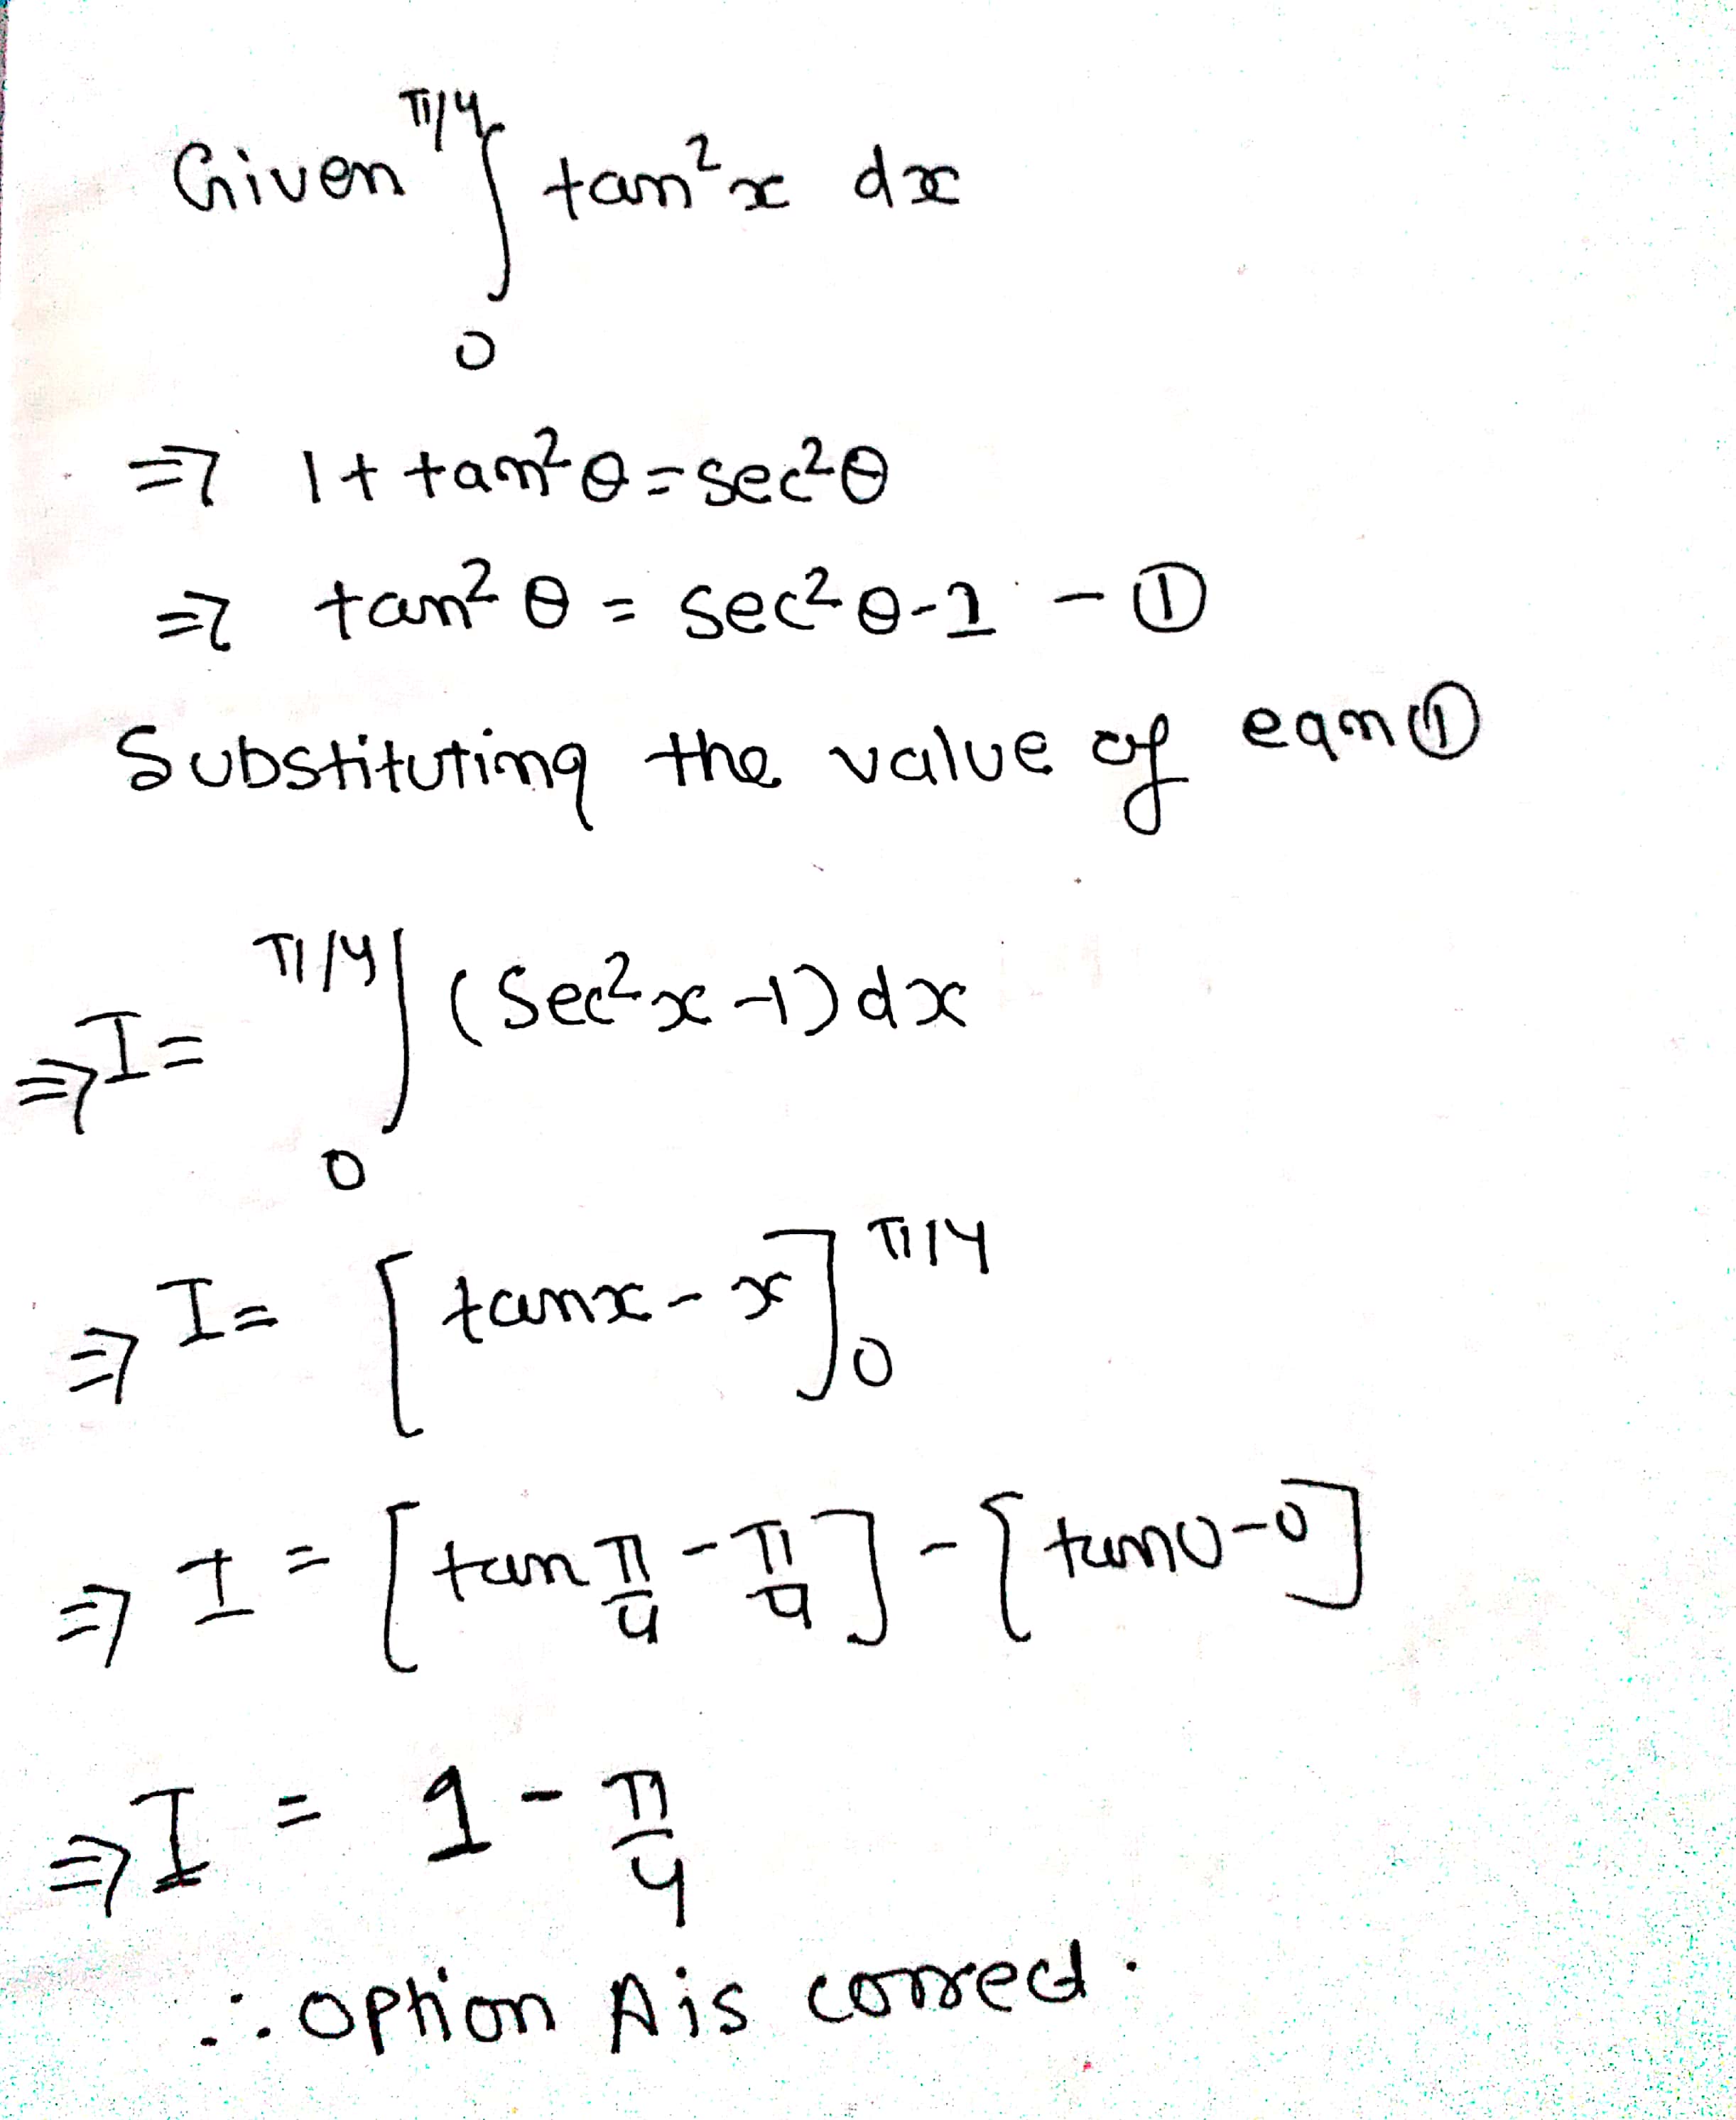 Given ∫₀^π/4 tan²x dx
⇒ 1+ tan²θ = sec²θ
⇒ tan²θ = sec²θ-1 - ①
Substituting the value of eqn ①
⇒ I = ∫₀^π/4 (Sec²x -1) dx
⇒ I = [tanx - x]₀^π/4
⇒ I = [tan π/4 - π/4] - [tan0-0]
⇒ I = 1 - π/4
∴ option A is correct.